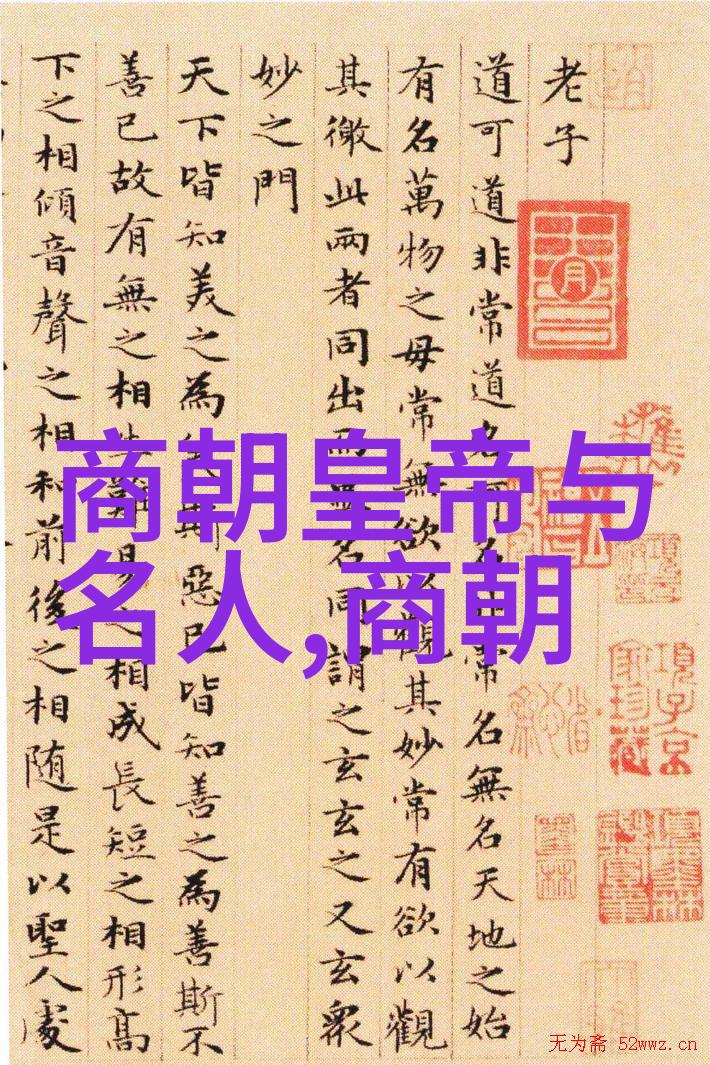 老子
道可道非常道名可名非常名無名天地之始
有名萬物之母常無欲以觀其妙常有欲以觀
其徼此兩者同出而異名同謂之玄玄之又玄衆
妙之門
天下皆知美之為美斯惡已皆知善之為善斯不
善已故有無之相生難易之相成長短之相形高
下之相傾音聲之相和前後之相随是以聖人處
商朝皇帝与
名人,商朝
項子京
家珍藏
墨林
无为斋 52wwz.cn